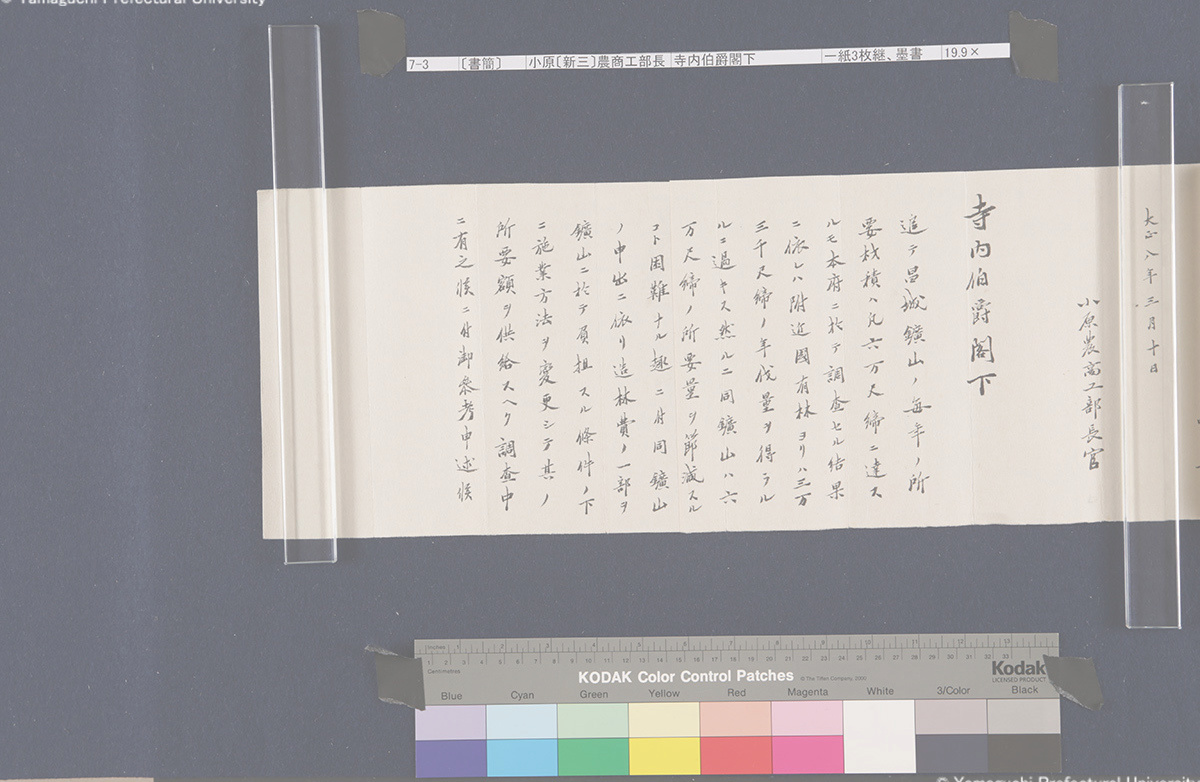 © Yamaguchi Prefectural University
7-3 〔書簡〕 小原〔新三〕農商工部長 寺内伯爵閣下 一紙3枚継、墨書 19.9×
大正八年三月十日
小原農商工部長官
寺内伯爵閣下
追テ昌城鑛山ノ毎年ノ所
要材積ハ凡六万尺締ニ達ス
ルモ本府ニ於テ調査セル結果
ニ依レハ附近國有林ヨリハ三万
三千尺締ノ年伐量ヲ得ラル
ルニ過キス然ルニ同鑛山ハ六
万尺締ノ所要量ヲ節減スル
コト困難ナル趣ニ付同鑛山
ノ申出ニ依リ造林費ノ一部ヲ
鑛山ニ於テ負担スル條件ノ下
ニ施業方法ヲ変更シテ其ノ
所要額ヲ供給スヘク調査中
ニ有之候ニ付御参考申述候
Inches 1 2 3 4 5 6 7 8 9 10 11 12 13
Centimetres 1 2 3 4 5 6 7 8 9 10 11 12 13 14 15 16 17 18 19 20 21 22 23 24 25 26 27 28 29 30 31 32 33
KODAK Color Control Patches © The Tiffen Company, 2000
Kodak
LICENSED PRODUCT
Blue Cyan Green Yellow Red Magenta White 3/Color Black
© Yamaguchi Prefectural University